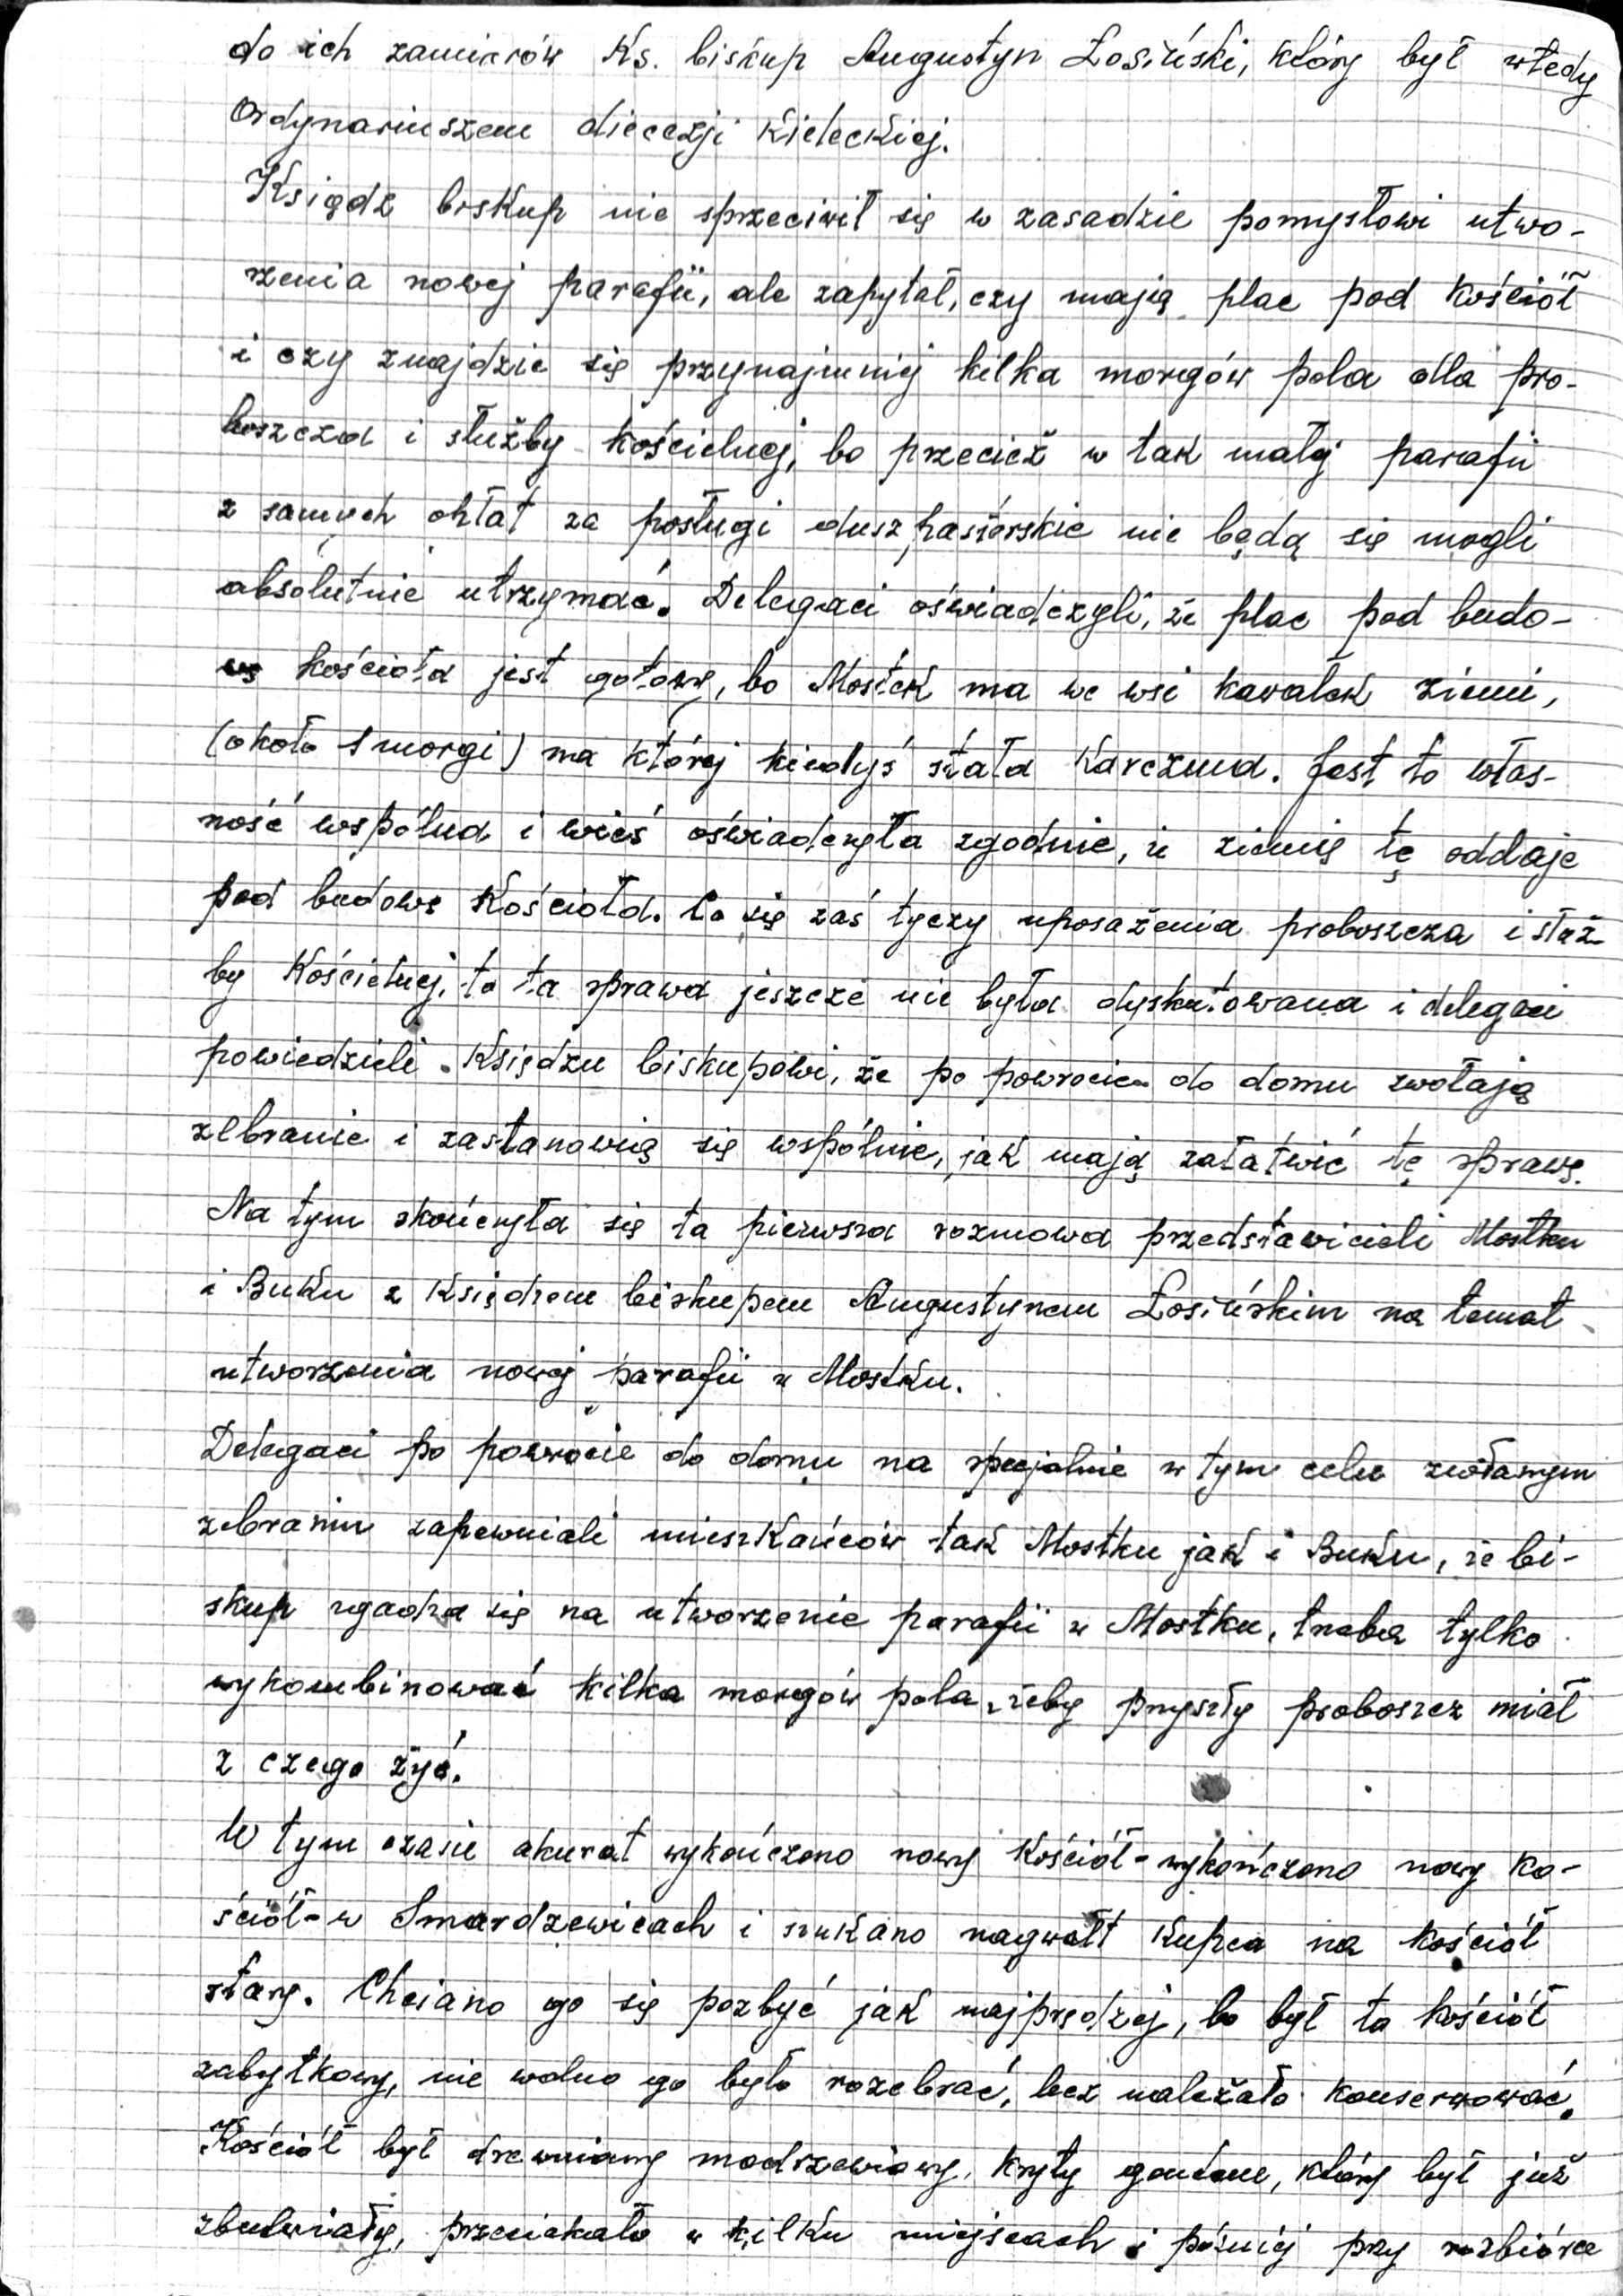 do ich zamiarów Ks. biskup Augustyn Łosiński, który był wtedy
Ordynariuszem diecezji Kieleckiej.
Ksiądz biskup nie sprzeciwił się w zasadzie pomysłowi utwo-
rzenia nowej parafii, ale zapytał, czy mają plac pod kościół
i czy znajdzie się przynajmniej kilka morgów pola dla pro-
boszcza i służby kościelnej, bo przecież w tak małej parafii
z samych opłat za posługi duszpasterskie nie będą się mogli
absolutnie utrzymać. Delegaci oświadczyli, że plac pod budo-
wę kościoła jest gotowy, bo Mostek ma we wsi kawałek ziemi,
(około 1 morgi) na której kiedyś stała Karczma. Jest to włas-
ność wspólna i wieś oświadczyła zgodnie, iż ziemię tę oddaje
pod budowę Kościoła. Co się zaś tyczy uposażenia proboszcza i służ-
by Kościelnej, to ta sprawa jeszcze nie była dyskutowana i delegaci
powiedzieli Księdzu biskupowi, że po powrocie do domu zwołają
zebranie i zastanowią się wspólnie, jak mają załatwić tę sprawę.
Na tym skończyła się ta pierwsza rozmowa przedstawicieli Mostku
i Buku z Księdzem biskupem Augustynem Łosińskim na temat
utworzenia nowej parafii w Mostku.
Delegaci po powrocie do domu na specjalnie w tym celu zwołanym
zebraniu zapewniali mieszkańców tak Mostku jak i Buku, że bi-
skup zgadza się na utworzenie parafii w Mostku, trzeba tylko
wykombinować kilka morgów pola, żeby przyszły proboszcz miał
z czego żyć.
W tym czasie akurat wykończono nowy Kościół - wykończono nowy ko-
ściół - w Smardzewicach i szukano nagwałt Kupca na kościół
stary. Chciano go się pozbyć jak najprędzej, bo był to kościół
zabytkowy, nie wolno go było rozebrać, lecz należało konserwować.
Kościół był drewniany modrzewiowy, kryty gontem, który był już
zbutwiały, przeciekało w kilku miejscach i później przy rozbiórce